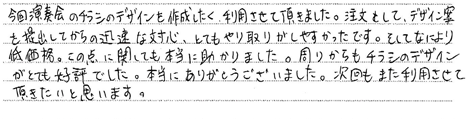 今回演奏会のチラシのデザインを作成したく利用させて頂きました。注文として、デザイン案
を提出してからの迅速な対応、とてもやり取りがしやすかったです。そしてなにより
低価格。この点に関しても本当に助かりました。周りからもチラシのデザイン
がとても好評でした。本当にありがとうございました。次回もまた利用させて
頂きたいと思います。